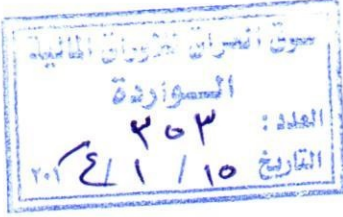 سوق العراق للاوراق المالية
الواردة
العدد : ٣٥٣
التاريخ ١٥ / ١ / ٢٠٢٤